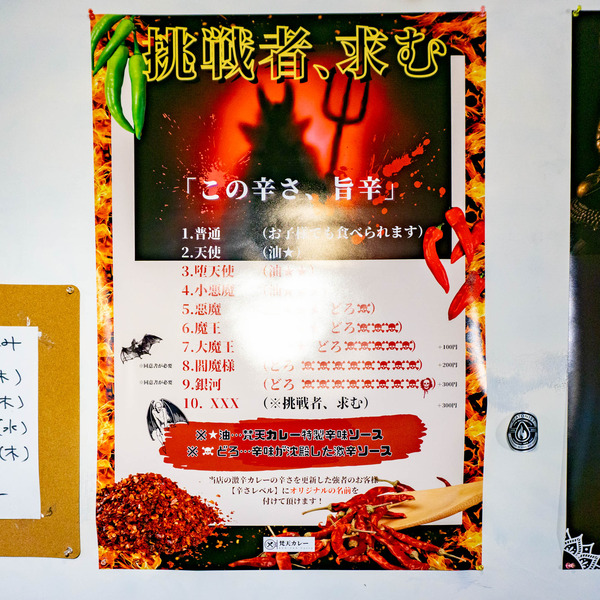 挑戦者、求む
「この辛さ、旨辛」
1.普通 (お子様でも食べられます)
2.天使 (油★)
3.堕天使 (油★★)
4.小悪魔
5.悪魔 どろ☠)
6.魔王 どろ☠☠☠)
7.大魔王 どろ☠☠☠☠☠) +100円
※同意書が必要 8.閻魔様 (どろ ☠☠☠☠☠☠☠☠) +200円
※同意書が必要 9.銀河 (どろ ☠☠☠☠☠☠☠☠☠☠) +300円
10. XXX (※挑戦者、求む) +300円
※★油…梵天カレー特製辛味ソース
※☠どろ…辛味が沈殿した激辛ソース
当店の激辛カレーの辛さを更新した強者のお客様
【辛さレベル】にオリジナルの名前を
付けて頂けます！
梵天カレー
み
木)
木)
(水)
(木)